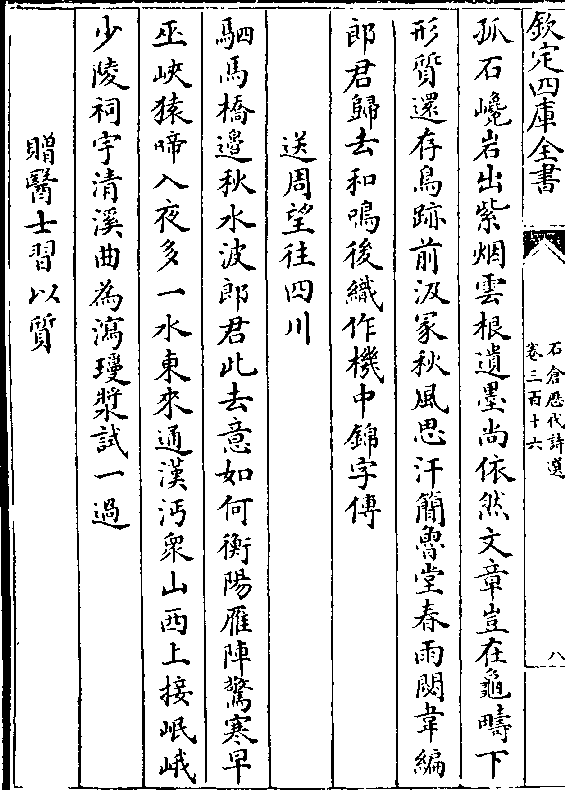 欽定四庫全書
石倉歷代詩選
卷三百十六
八
孤石巉岩出紫烟雲根遺墨尚依然文章豈在龜疇下
形質還存鳥跡前汲冢秋風思汗簡魯堂春雨閟韋編
郎君歸去和鳴後織作機中錦字傳
送周望往四川
駟馬橋邉秋水波郎君此去意如何衡陽雁陣驚寒早
巫峽猿啼入夜多一水東來通漢沔衆山西上接岷峨
少陵祠宇清溪曲為瀉瓊漿試一過
贈醫士習以質